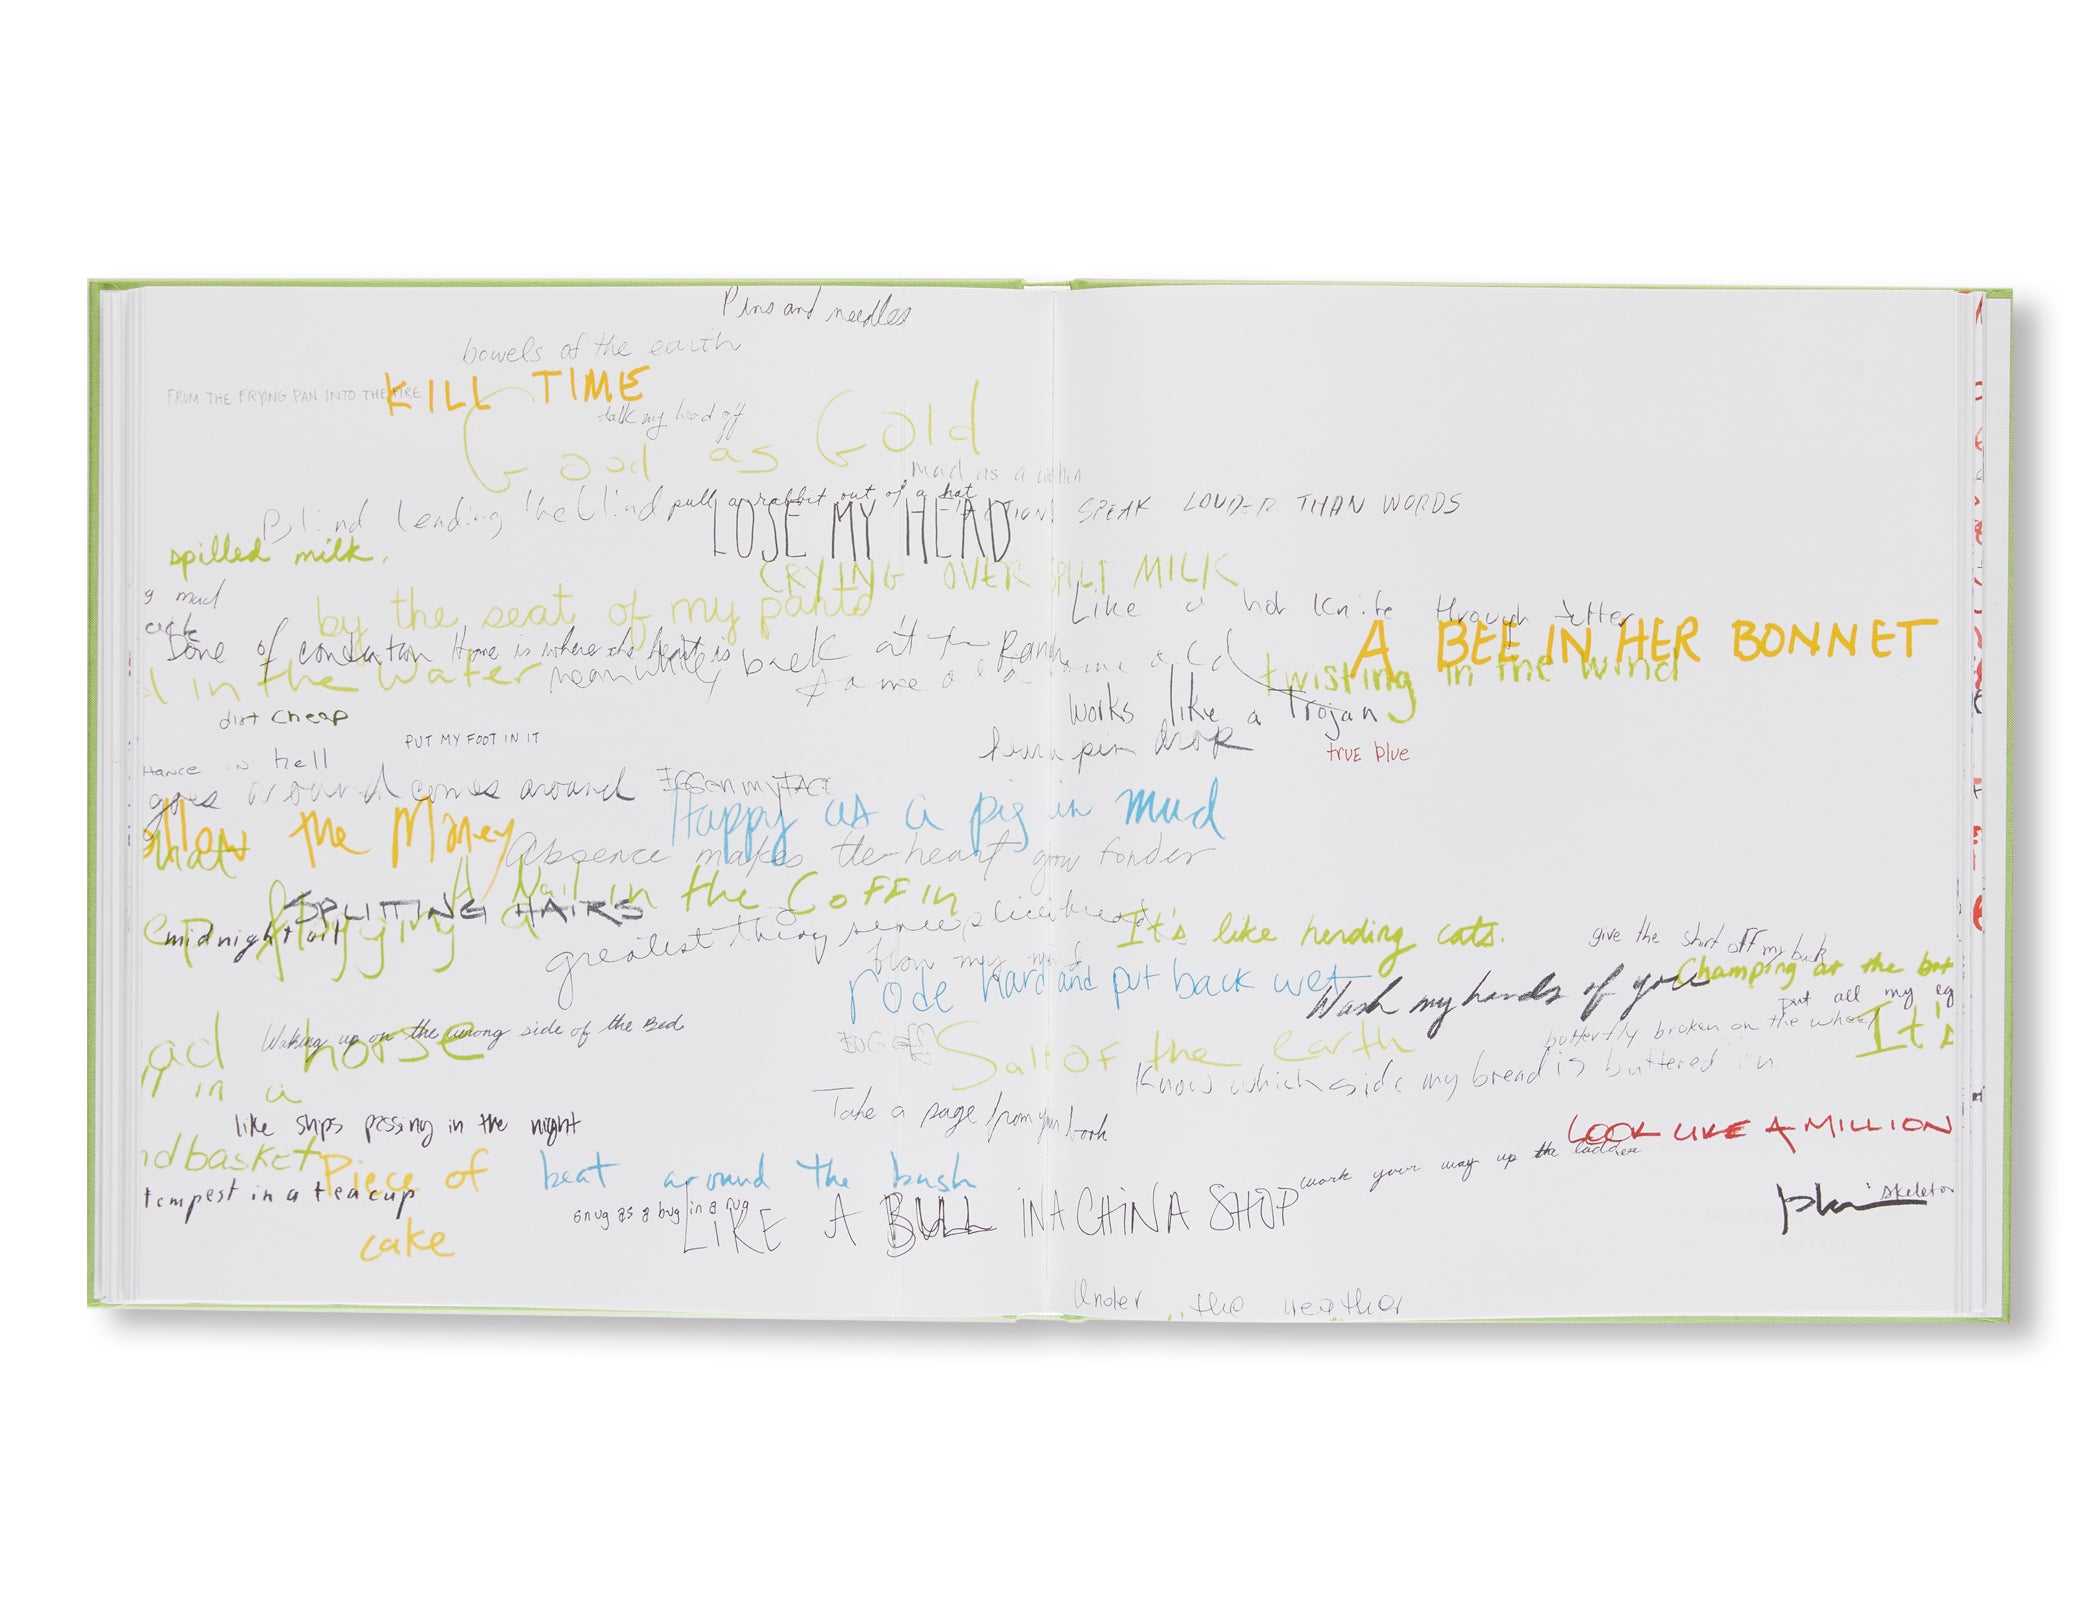 Pins and needles
bowels of the earth
KILL TIME
FROM THE FRYING PAN INTO THE FIRE
talk my head off
Good as Gold
mad as a
Blind leading the blind
pull a rabbit out of a hat
ACTIONS SPEAK LOUDER THAN WORDS
LOSE MY HEAD
spilled milk.
CRYING OVER SPILT MILK
mad
by the seat of my pants
Like a hot knife through butter
A BEE IN HER BONNET
of
Home is where the heart is
meanwhile, back at the Ranch
same old
twisting in the wind
d in the water
works like a Trojan
dirt cheap
PUT MY FOOT IN IT
pin drop
true blue
Hance in hell
goes around comes around
EGG ON MY FACE
Happy as a pig in mud
llow the Money
that
Absence makes the heart grow fonder
A Nail in the Coffin
SPLITTING HAIRS
ep flogging a
midnight oil
greatest thing since sliced bread
It's like herding cats.
give the shirt off my back
blow my mind
Champing at the bit
rode hard and put back wet
Wash my hands of you
put all my eg
butterfly broken on the wheel
It's
Waking up on the wrong side of the Bed
ead horse
Salt of the earth
Know which side my bread is buttered in
in a
Take a page from your book
like ships passing in the night
LOOK LIKE A MILLION
ndbasket
work your way up the ladder
Piece of
cake
beat around the bush
tempest in a teacup
snug as a bug in a rug
LIKE A BULL IN A CHINA SHOP
skeleton
Under the weather